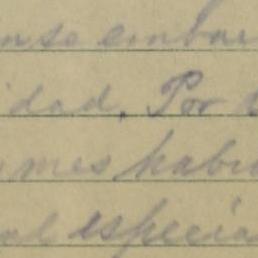 nse embar
idad. Por
mes habi
al especia